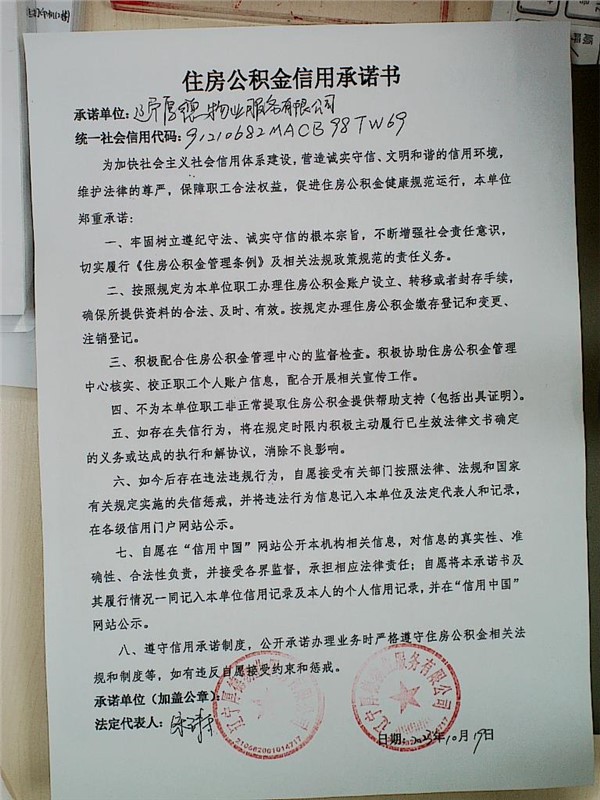 住房公积金信用承诺书
承诺单位：辽宁厚德物业服务有限公司
统一社会信用代码：91210682MACB98TW69
为加快社会主义社会信用体系建设，营造诚实守信、文明和谐的信用环境，
维护法律的尊严，保障职工合法权益，促进住房公积金健康规范运行，本单位
郑重承诺：
一、牢固树立遵纪守法、诚实守信的根本宗旨，不断增强社会责任意识，
切实履行《住房公积金管理条例》及相关法规政策规范的责任义务。
二、按照规定为本单位职工办理住房公积金账户设立、转移或者封存手续，
确保所提供资料的合法、及时、有效。按规定办理住房公积金缴存登记和变更、
注销登记。
三、积极配合住房公积金管理中心的监督检查。积极协助住房公积金管理
中心核实、校正职工个人账户信息，配合开展相关宣传工作。
四、不为本单位职工非正常提取住房公积金提供帮助支持（包括出具证明）。
五、如存在失信行为，将在规定时限内积极主动履行已生效法律文书确定
的义务或达成的执行和解协议，消除不良影响。
六、如今后存在违法违规行为，自愿接受有关部门按照法律、法规和国家
有关规定实施的失信惩戒，并将违法行为信息记入本单位及法定代表人和记录，
在各级信用门户网站公示。
七、自愿在“信用中国”网站公开本机构相关信息，对信息的真实性、准
确性、合法性负责，并接受各界监督，承担相应法律责任；自愿将本承诺书及
其履行情况一同记入本单位信用记录及本人的个人信用记录，并在“信用中国”
网站公示。
八、遵守信用承诺制度，公开承诺办理业务时严格遵守住房公积金相关法
规和制度等，如有违反自愿接受约束和惩戒。
承诺单位（加盖公章）：
法定代表人：宋
日期：2023年10月19日